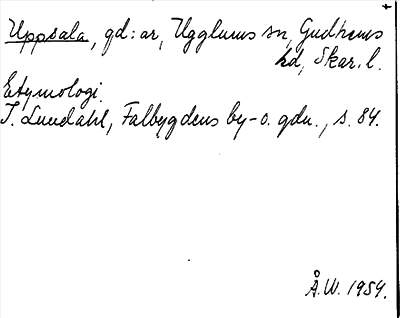 Uppsala, gd:ar, Ugglums sn, Gudhems
hd, Skar. l.
Etymologi.
I. Lundahl, Falbygdens by-o. gdn., s. 84.
Å.W. 1954.